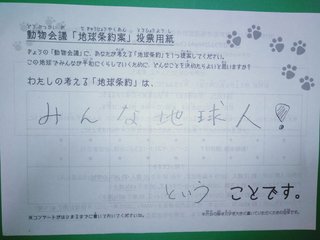 動物会議「地球条約案」投票用紙
きょうの「動物会議」に、あなたが考える「地球条約」を1つ提案してください。
この地球でみんなが平和にくらしていくために、どんなことを決めたらよいと思いますか?
わたしの考える「地球条約」は、
みんな地球人!
という ことです。